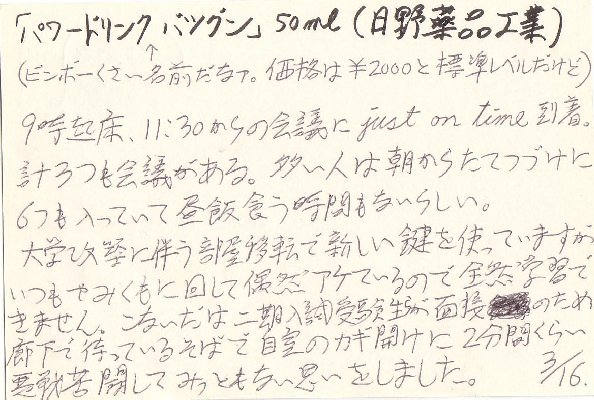 「パワードリンク バツグン」50ml(日野薬品工業)
↑
(ビンボーくさい名前だなァ。価格は¥2000と標準レベルだけど)
9時起床、11:30からの会議にjust on time到着。
計3つも会議がある。多い人は朝からたてつづけに
6つも入っていて昼飯食う時間もないらしい。
大学改築に伴う部屋移転で新しい鍵を使っていますが
いつもやみくもに回して偶然アケているので全然学習で
きません。こないだは二期入試受験生が面接のため
廊下で待っているそばで自室のカギ開けに2分間くらい
悪戦苦闘してみっともない思いをしました。3/16.